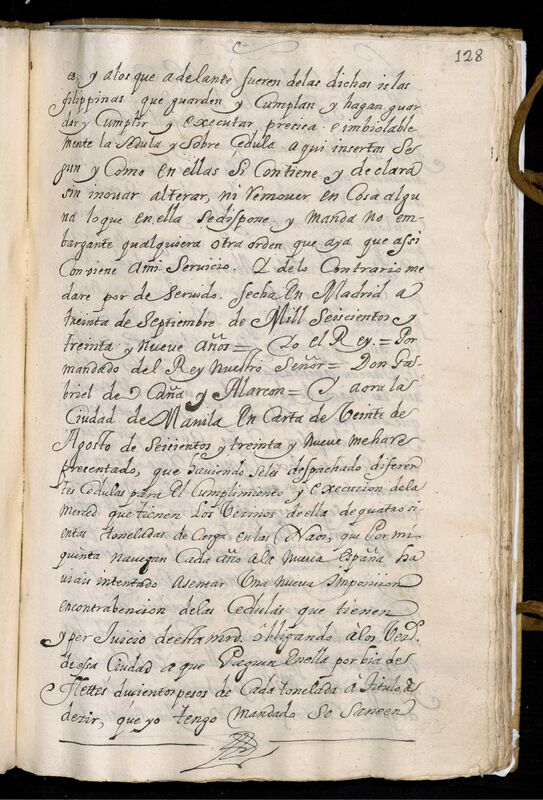 128
es, y alos que adelante fueren delas dichas islas
filippinas que guarden y Cumplan y hagan guar
dar y Cumplir y executar precisa e imbiolable
mente la Sedula y Sobre Cedula aqui insertas Se
gun y Como en ellas Se Contiene y declara
sin inovar alterar, ni Remover en Cosa algu
na loque en ella Sedispone y Manda no em-
bargante qualquiera otra orden que aya que assi
Conviene ami Servicio. Y delo Contrario me
dare por de Servido. fecha En Madrid a
treinta de Septiembre de Mill Seiscientos y
treinta y Nueve años = Yo el Rey = Por
mandado del Rey Nuestro Señor = Don Ga-
briel de Ocaña y Alarcon = Y aora la
Ciudad de Manila En Carta de Veinte de
Agosto de Seiscientos y treinta y Nueve meha Re
precentado, que haviendo Seles despachado diferen
tes Cedulas para El Cumplimiento y execucion dela
merced que tienen Los Vecinos de ella de quatrosi
entas toneladas de Carga en las Naos, que Por mi
quinta navegan Cada año ala Nueva España ha
viais intentado Asentar Una Nueva Imposicion
en contrabencion delas Cedulas que tienen
y per Juicio de esta mrd. obligando a los Vezs.
de essa Ciudad a que Paguen En ella por bia de
flettes ducientos pesos de Cada tonelada a titulo de
dezir, que yo tengo Mandado Se Saneen